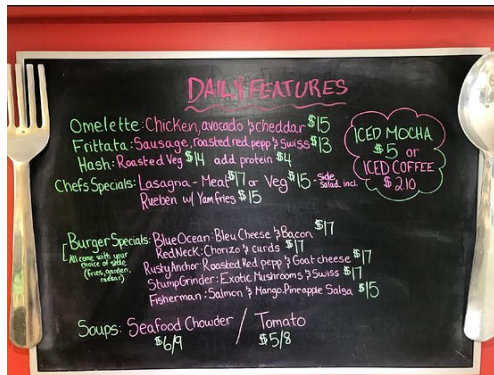 DAILY FEATURES
Omelette: Chicken, avocado & cheddar $15
Frittata: Sausage, roasted red pepp & Swiss $13
Hash: Roasted Veg $14 add protein $4
Chefs Specials: Lasagna - Meat $17 or Veg $15 - Side Salad incl.
Rueben w/ Yam fries $15
ICED MOCHA
$5 or
ICED COFFEE
$2.10
Burger Specials: Blue Ocean: Bleu Cheese & Bacon $17
[All come with your choice of side (fries, garden, caesar)
RedNeck: Chorizo & curds $17
Rusty Anchor: Roasted Red pepp & Goat cheese $17
Stump Grinder: Exotic Mushrooms & Swiss $17
Fisherman: Salmon & Mango.Pineapple Salsa $15
Soups: Seafood Chowder / Tomato
$6/9 $5/8